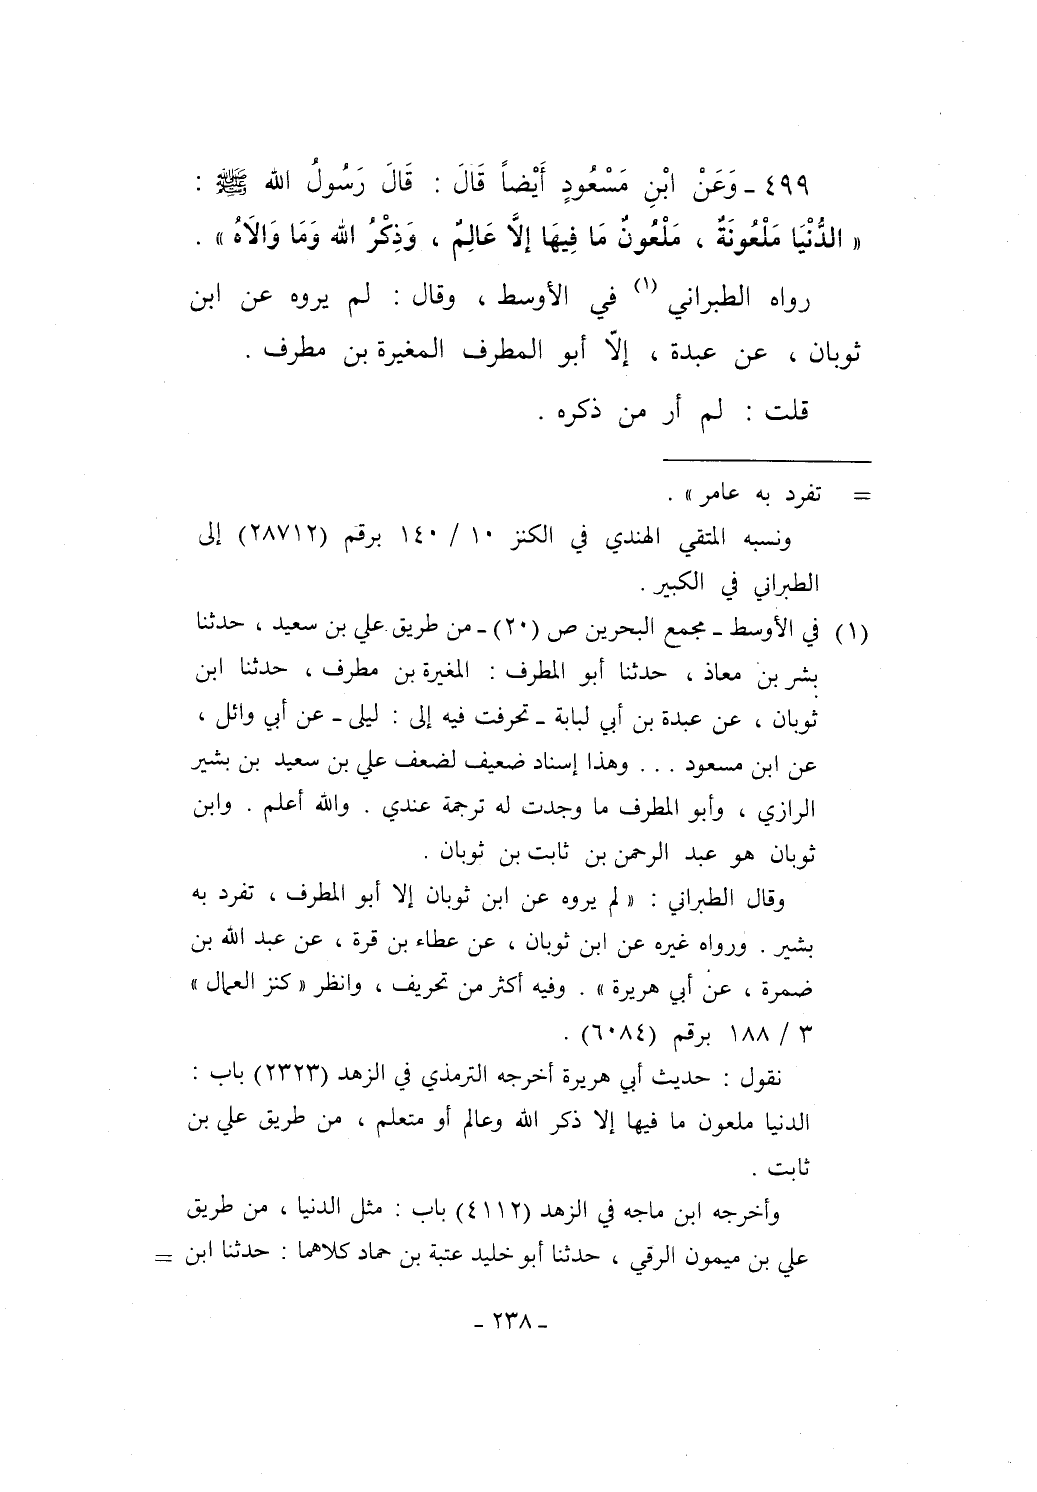 ٤٩٩ ـ وَعَنْ ابْنِ مَسْعُودٍ أَيْضاً قَالَ : قَالَ رَسُولُ الله ﷺ :
« الدُّنْيَا مَلْعُونَةٌ ، مَلْعُونٌ مَا فِيهَا إلاَّ عَالِمٌ ، وَذِكْرُ الله وَمَا وَالاَهُ » .
رواه الطبراني (١) في الأوسط ، وقال : لم يروه عن ابن
ثوبان ، عن عبدة ، إلاّ أبو المطرف المغيرة بن مطرف .
قلت : لم أر من ذكره .
= تفرد به عامر » .
ونسبه المتقي الهندي في الكنز ١٠ / ١٤٠ برقم (٢٨٧١٢) إلى
الطبراني في الكبير .
(١) في الأوسط ـ مجمع البحرين ص (٢٠) ـ من طريق علي بن سعيد ، حدثنا
بشر بن معاذ ، حدثنا أبو المطرف : المغيرة بن مطرف ، حدثنا ابن
ثوبان ، عن عبدة بن أبي لبابة ـ تحرفت فيه إلى : ليلى ـ عن أبي وائل ،
عن ابن مسعود . . . وهذا إسناد ضعيف لضعف علي بن سعيد بن بشير
الرازي ، وأبو المطرف ما وجدت له ترجمة عندي . والله أعلم . وابن
ثوبان هو عبد الرحمن بن ثابت بن ثوبان .
وقال الطبراني : « لم يروه عن ابن ثوبان إلا أبو المطرف ، تفرد به
بشير . ورواه غيره عن ابن ثوبان ، عن عطاء بن قرة ، عن عبد الله بن
ضمرة ، عن أبي هريرة » . وفيه أكثر من تحريف ، وانظر « كنز العمال »
٣ / ١٨٨ برقم (٦٠٨٤) .
نقول : حديث أبي هريرة أخرجه الترمذي في الزهد (٢٣٢٣) باب :
الدنيا ملعون ما فيها إلا ذكر الله وعالم أو متعلم ، من طريق علي بن
ثابت .
وأخرجه ابن ماجه في الزهد (٤١١٢) باب : مثل الدنيا ، من طريق
علي بن ميمون الرقي ، حدثنا أبو خليد عتبة بن حماد كلاهما : حدثنا ابن =
ـ ٢٣٨ ـ